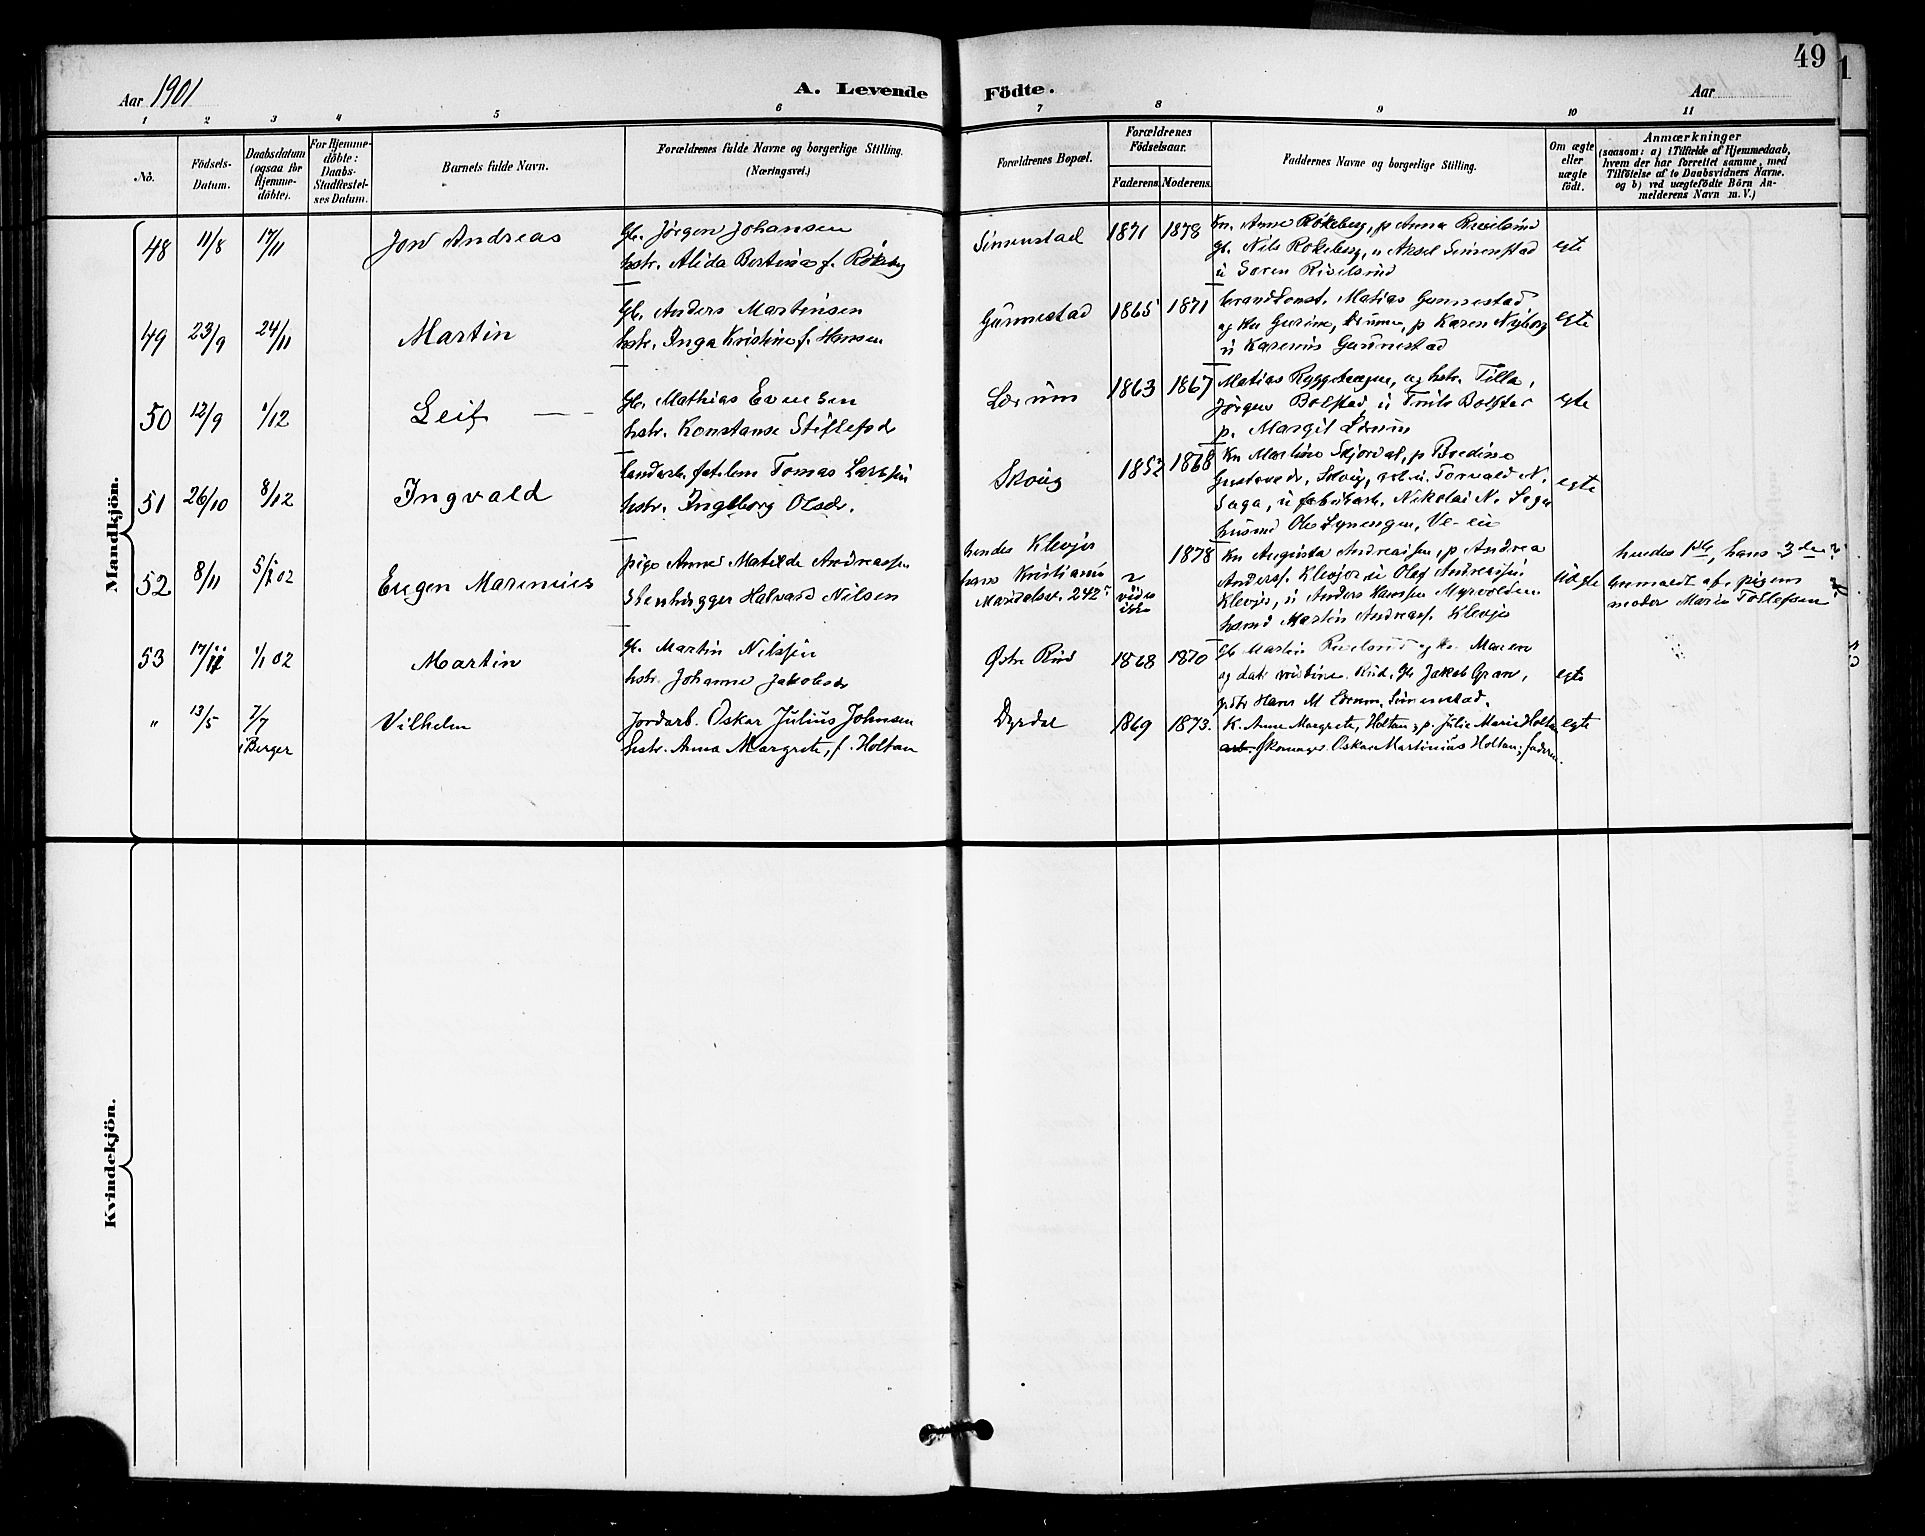 49
Aar 1901
A. Levende
Födte.
Aar
1 2 3 4 5 6 7 8 9 10 11
No.
Födsels-
Datum.
Daabsdatum
(ogsaa for
Hjemme-
döbte).
For Hjemme-
döbte:
Daabs-
Stadfæstel-
ses Datum.
Barnets fulde Navn.
Forældrenes fulde Navne og borgerlige Stilling.
(Næringsvei.)
Forældrenes Bopæl.
Forældrenes
Födselsaar.
Faderens. Moderens.
Faddernes Navne og borgerlige Stilling.
Om ægte
eller
uægte
födt.
Anmærkninger
(saasom: a) i Tilfælde af Hjemmedaab,
hvem der har forrettet samme, med
Tilföielse af to Daabsvidners Navne.
og b) ved uægtefödte Börn An-
melderens Navn m. V.)
Mandkjön.
48 11/8 17/11 Jon Andreas
Gb. Jørgen Johansen
hstr. Alida Bertine f. Røkeberg
Sinnestad 1871 1878
kn. Anne Røkeberg, p Anna
gb. Nils Røkeberg, u Aksel Sinnestad
u Soren
egte
49 23/9 24/11 Martin
Gb. Anders Martinsen
hstr. Inga Kristine f. Hansen
Gunnestad 1865 1871
Matias Gunnestad
og kn Gurine, p Karen Nyborg
u Karenius Gunnestad
egte
50 12/9 1/12 Leif
Gb. Mathias Evensen
hstr. Konstanse
Lerum 1863 1867
Matias og hstr. Tilla,
Jørgen Bolstad, u
p. Margit Lerum
egte
51 26/10 8/12 Ingvald
Tomas Larssen
hstr. Ingeborg Olsdr.
Skoug 1852 1868
kn Martine p
Skoug, u. Torvald N.
Saga, u fabrikarb. Nikolai N. Saga
husmd Ole
egte
52 8/11 5/1 02 Eugen Marinius
pige Anne Matilde Andreassen
Stenhugger Halvard Nilsen
hendes Klevjer
hans Kristiania
242
vides
ikke
1878
kn Augusta Andreassen, p Andrea
Anders. Klevjer u Olaf Andreassen
Klevjer, u Anders Hanssen
husmd Martin Andreass. Klevjer
uægte
hendes 1ste, hans 3die?
anmeldt af pigens
moder Maren Tollefsen
53 17/11 1/1 02 Martin
Gb. Martin Nilssen
hstr. Johanne Jakobsdr
Østre Rud 1868 1870
Gb Martin og kn Maren
og datr Rud, Gb Jakob Gran,
Hans M Lerum, Sinnestad.
egte
" 13/5 7/7 Vilhelm
i Berger
Jordarb. Oskar Julius Johnsen
hstr. Anna Margrete, f. Holtan
Dyrdal 1869 1873.
K. Anne Margrete Holtan, p. Julie Marie Holtan
Skomager Oskar Martinius Holtan; faderen.
egte
Kvindekjön.